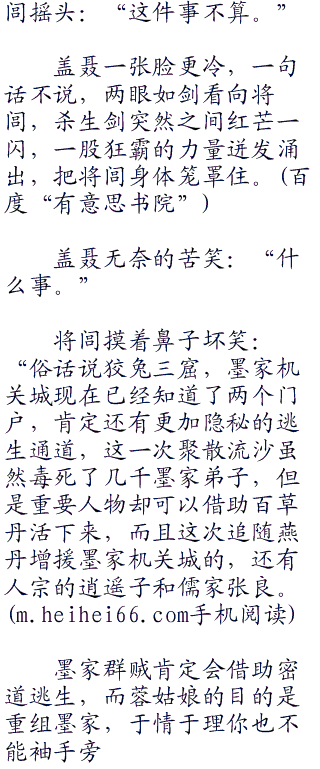 闾摇头：“这件事不算。”
盖聂一张脸更冷，一句
话不说，两眼如剑看向将
闾，杀生剑突然之间红芒一
闪，一股狂霸的力量迸发涌
出，把将闾身体笼罩住。(百
度“有意思书院”)
盖聂无奈的苦笑：“什
么事。”
将闾摸着鼻子坏笑：
“俗话说狡兔三窟，墨家机
关城现在已经知道了两个门
户，肯定还有更加隐秘的逃
生通道，这一次聚散流沙虽
然毒死了几千墨家弟子，但
是重要人物却可以借助百草
丹活下来，而且这次追随燕
丹增援墨家机关城的，还有
人宗的逍遥子和儒家张良。
(m.heihei66.com手机阅读)
墨家群贼肯定会借助密
道逃生，而蓉姑娘的目的是
重组墨家，于情于理你也不
能袖手旁